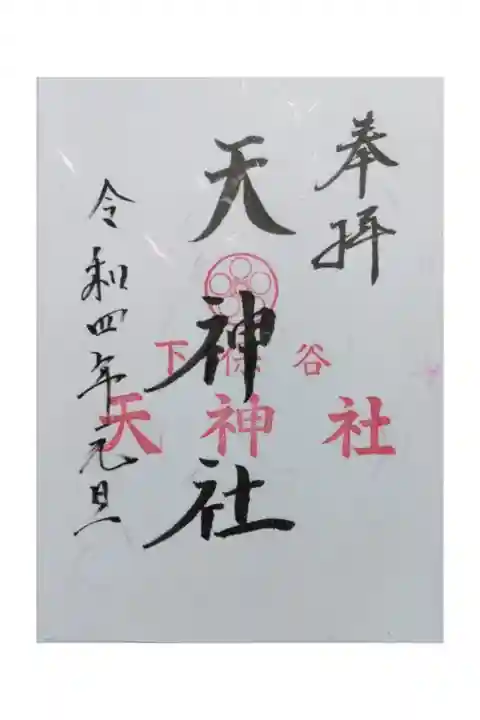 奉拝
天神社
下保谷
天神社
令和四年元旦